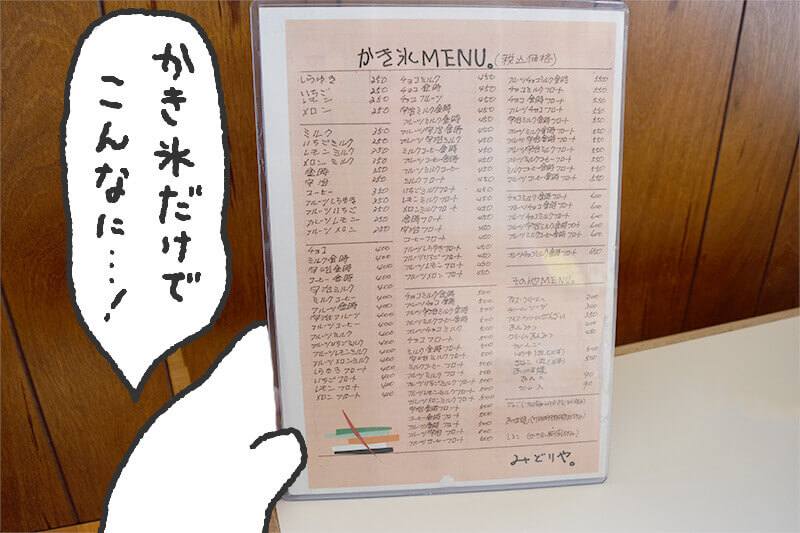 かき氷だけで
こんなに…！
かき氷MENU。(税込価格)
しらゆき 250
いちご 250
レモン 250
メロン 250
ミルク 350
いちごミルク 350
レモンミルク 350
メロンミルク 350
金時 350
宇治 350
コーヒー 350
フルーツしらゆき 350
フルーツいちご 350
フルーツレモン 350
フルーツメロン 350
チョコ 400
ミルク金時 400
宇治金時 400
コーヒー金時 400
宇治ミルク 400
ミルクコーヒー 400
フルーツ金時 400
フルーツ宇治 400
フルーツコーヒー 400
フルーツミルク 400
フルーツいちごミルク 400
フルーツレモンミルク 400
フルーツメロンミルク 400
しらゆきフロート 400
いちごフロート 400
レモンフロート 400
メロンフロート 400
チョコミルク 450
チョコ金時 450
チョコフルーツ 450
宇治ミルク金時 450
フルーツミルク金時 450
フルーツ宇治金時 450
フルーツ宇治ミルク 450
ミルクコーヒー金時 450
フルーツコーヒー金時 450
フルーツミルクコーヒー 450
ミルクフロート 450
いちごミルクフロート 450
レモンミルクフロート 450
メロンミルクフロート 450
金時フロート 450
宇治フロート 450
コーヒーフロート 450
フルーツしらゆきフロート 450
フルーツいちごフロート 450
フルーツレモンフロート 450
フルーツメロンフロート 450
チョコミルク金時 500
フルーツチョコ金時 500
フルーツ宇治ミルク金時 500
フルーツミルクコーヒー金時 500
フルーツチョコミルク 500
チョコフロート 500
ミルク金時フロート 500
宇治ミルクフロート 500
ミルクコーヒーフロート 500
フルーツミルクフロート 500
フルーツいちごミルクフロート 500
フルーツレモンミルクフロート 500
フルーツメロンミルクフロート 500
宇治金時フロート 500
コーヒー金時フロート 500
フルーツ金時フロート 500
フルーツ宇治フロート 500
フルーツコーヒーフロート 500
フルーツチョコミルク金時 550
チョコミルクフロート 550
チョコ金時フロート 550
フルーツチョコフロート 550
宇治ミルク金時フロート 550
フルーツミルク金時フロート 550
フルーツ宇治金時フロート 550
フルーツ宇治ミルクフロート 550
ミルクコーヒー金時フロート 550
フルーツミルクコーヒーフロート 550
フルーツコーヒー金時フロート 550
チョコミルク金時フロート 600
フルーツチョコ金時フロート 600
フルーツチョコミルクフロート 600
フルーツ宇治ミルク金時フロート 600
フルーツミルクコーヒー金時フロート 600
フルーツチョコミルク金時フロート 650
その他MENU。
クリームソーダ
あんみつ
クリームあんみつ
みどりや。